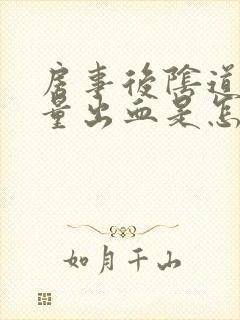 房事後陰道
量出血是怎
如月千山